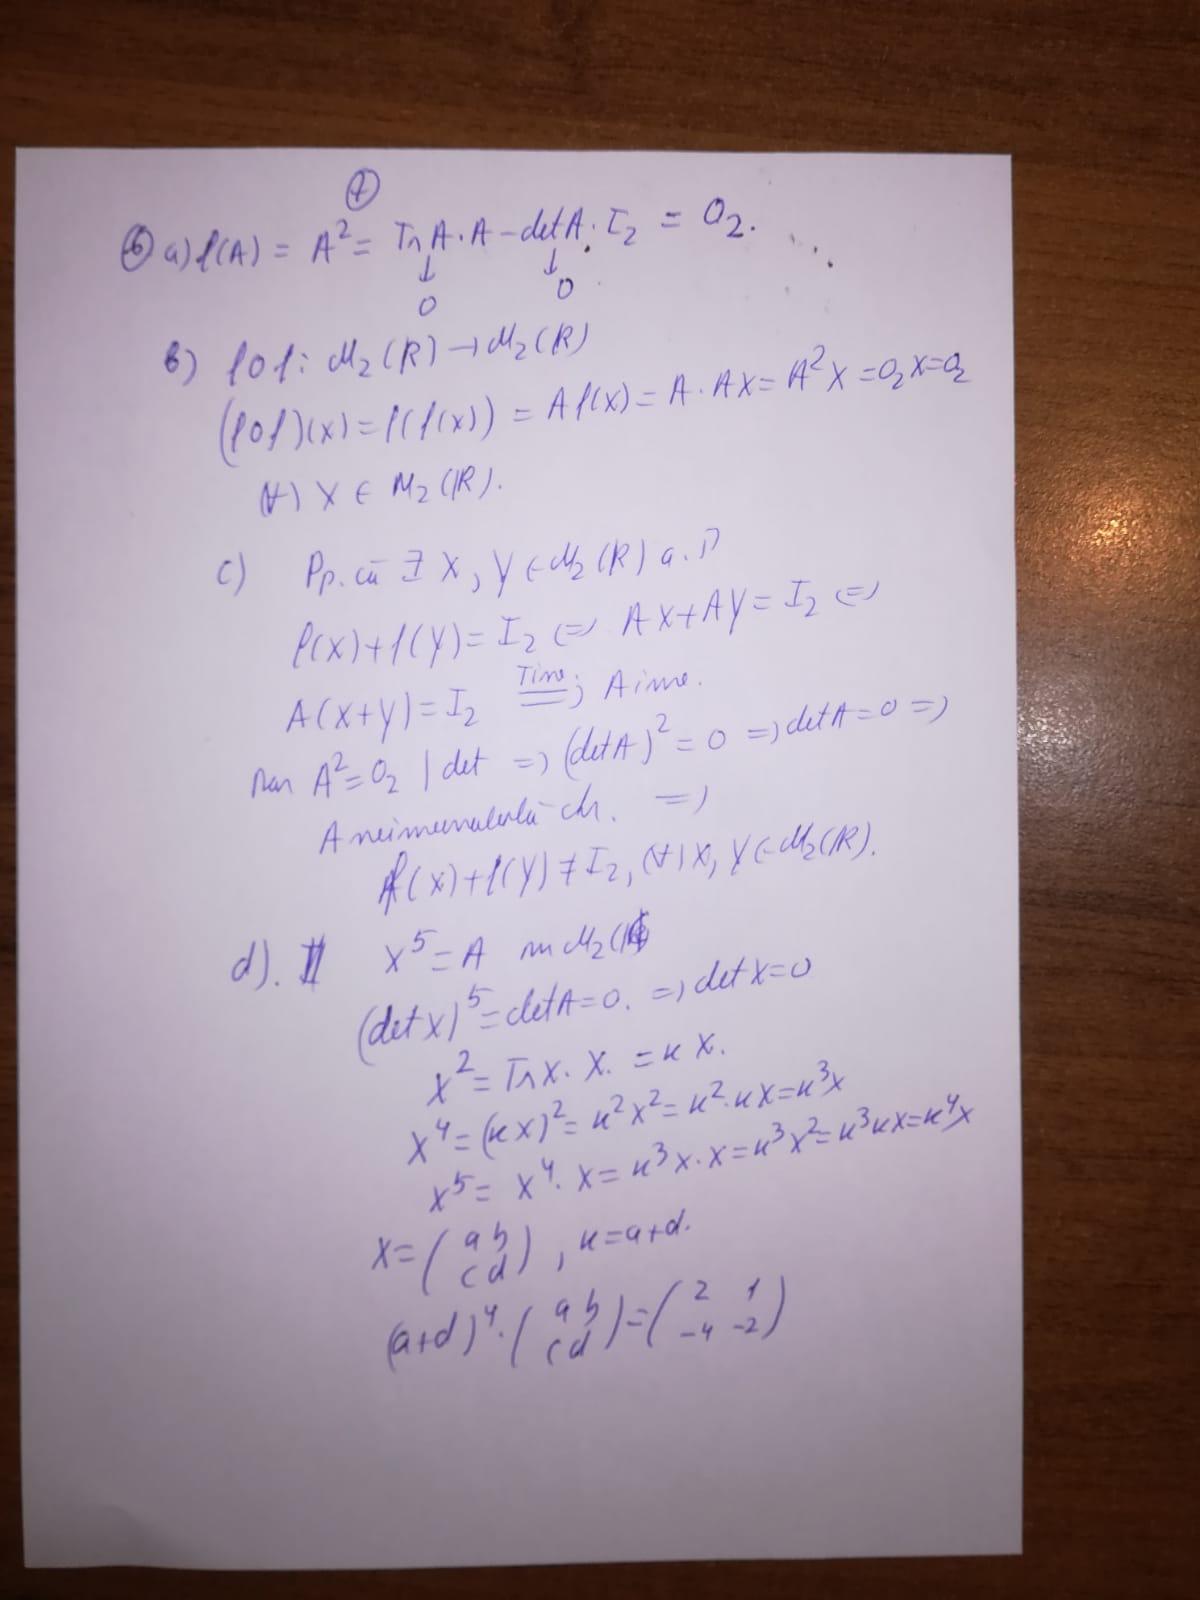 ⑦
⑥ a) f(A) = A² = Tr A · A - det A · I₂ = O₂.
↓ ↓
0 0
b) f∘f : M₂(R) → M₂(R)
(f∘f)(x) = f(f(x)) = A f(x) = A · AX = A²X = O₂X = O₂
(∀) X ∈ M₂(R).
c) Pp. că ∃ X, Y ∈ M₂(R) a.î
f(X) + f(Y) = I₂ ⇔ AX + AY = I₂ ⇔
A(X+Y) = I₂ ⇒ A inv.
Dar A² = O₂ | det ⇒ (det A)² = 0 ⇒ det A = 0 ⇒
A neinversabilă ⇒
f(X) + f(Y) ≠ I₂, (∀) X, Y ∈ M₂(R).
d). X⁵ = A în M₂(R)
(det X)⁵ = det A = 0. ⇒ det X = 0
X² = Tr X · X. = k X.
X⁴ = (kX)² = k²X² = k² · kX = k³X
X⁵ = X⁴ · X = k³X · X = k³X² = k³kX = k⁴X
X = (a b
c d), k = a+d.
(a+d)⁴ · (a b
c d) = (2 1
-4 -2)